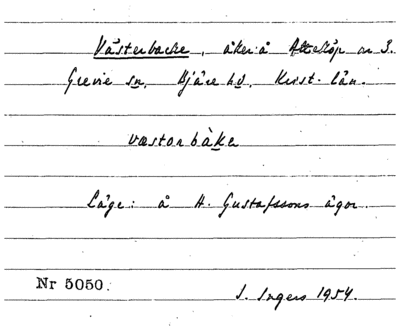 Västerbacke, åker å Atteköp nr 3.
Grevie sn, Bjäre hd, Krist. län.
væstarbàka
Läge: å H. Gustafssons ägor.
Nr 5050.
I. Ingers 1954.